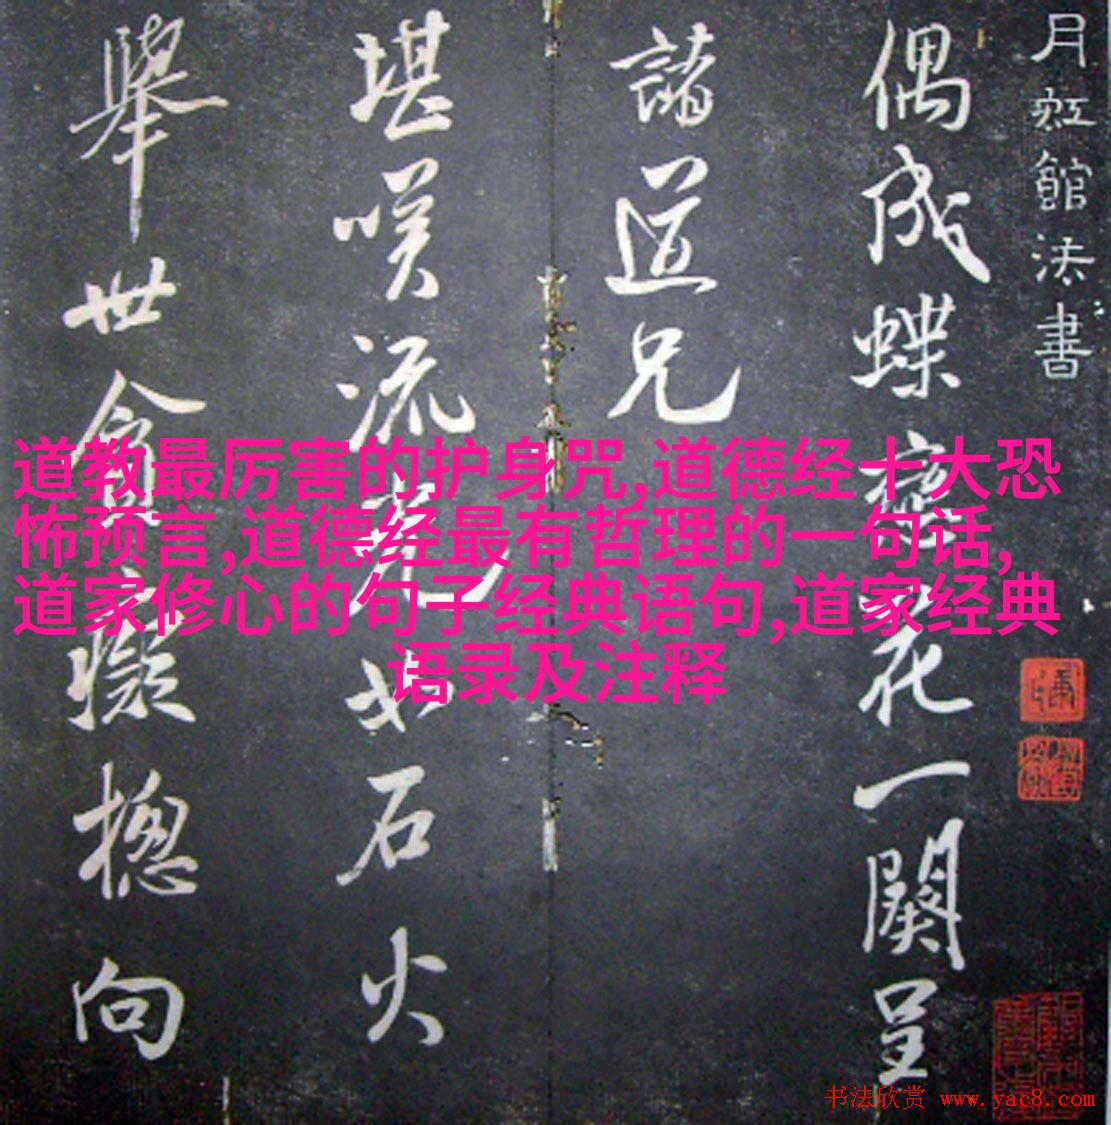 月虹館法書
偶成蝶戀花一闋呈
諸道兄
堪嘆流光如石火
舉世貪癡摠摠向
道教最厉害的护身咒,道德经十大恐
怖预言,道德经最有哲理的一句话,
道家修心的句子经典语句,道家经典
语录及注释
书法欣赏 www.yac8.com